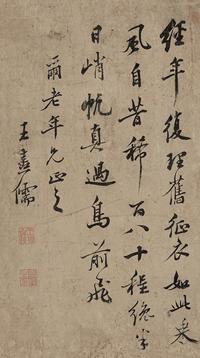 經年復理舊征衣如此
風自昔稀百八十程總半
日峭帆真過鳥前飛
爾老年兄正之
王嘉儒